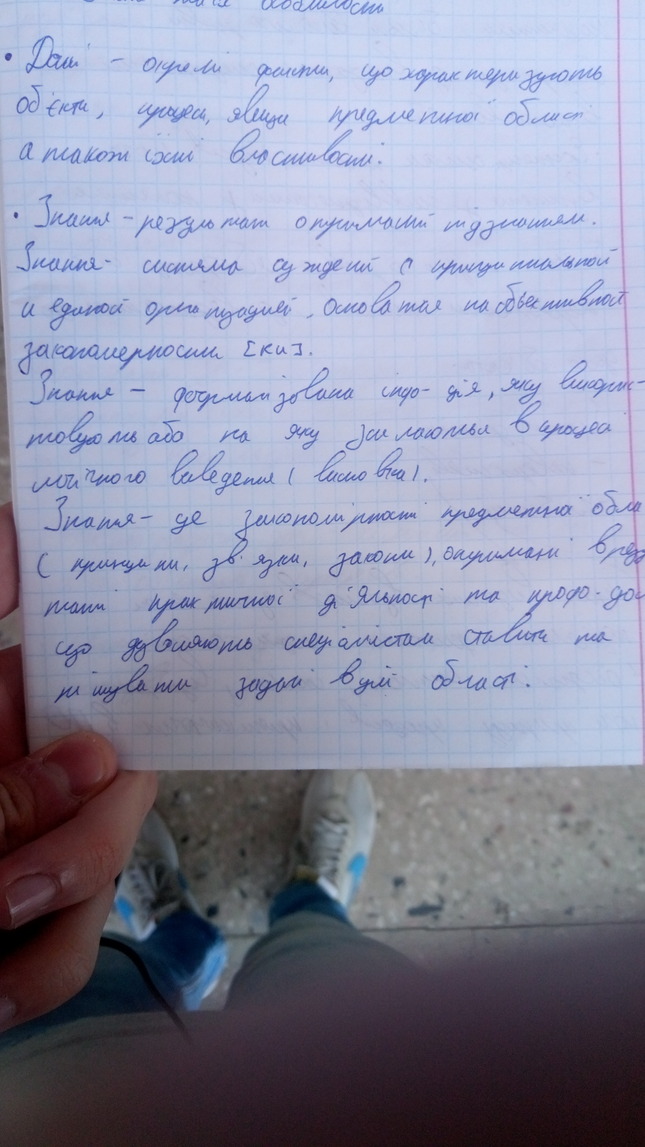 особливость
• Дані – окремі факти, що характеризують
об'єкти, процеси, явища предметної області
а також їхні властивості.
• Знання – результат отриманий пізнанням.
Знання – система суждений с принципиальной
и единой организацией, основатая на объективной
закономерности [ки].
Знання – формалізована інфо-ція, яку викорис-
товують або на яку посилаються в процесі
логічного виведення (висновка).
Знання – це закономірності предметної обла
(принципи, зв'язки, закони), отримані в рез
таті практичної діяльності та профо. до
що дозволяють спеціалістам ставити та
вирішувати задачі в цій області.